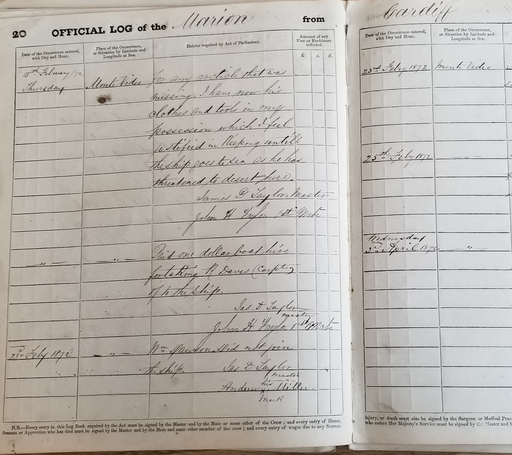 20 OFFICIAL LOG of the Marion from
Date of the Occurrence entered, with Day and Hour.
Place of the Occurrence, or Situation by Latitude and Longitude at Sea.
Entries required by Act of Parliament.
Amount of any Fine or Forfeiture inflicted.
£ s. d.
Thursday
Monte Video
for any article that was
missing. I have now his
clothes and tools in my
possession which I feel
justified in keeping untill
the ship goes to sea as he has
threatened to desert here
James D Taylor Master
John H 1st Mate
" " " " Paid one dollar boat hire
for taking R Davis (
to the ship
Jas. D Taylor
Master
John H 1st Mate
Feby 1872 " " Wm did not join
the ship Jas D Taylor
Master
Andrew his Miller
Mark
N.B.—Every entry in this Log Book required by the Act must be signed by the Master and by the Mate or some other of the Crew; and every entry of
Seaman or Apprentice who has died must be signed by the Master and by the Mate and some other member of the crew; and every entry of wages due to any Seaman
Cardiff
Date of the Occurrence entered, with Day and Hour.
Place of the Occurrence, or Situation by Latitude and Longitude at Sea.
Feby 1872 Monte Video
25th Feby 1872
Wednesday
April 1872 "
injury, or death must also be signed by the Surgeon or Medical
who enters Her Majesty's Service must be signed by the